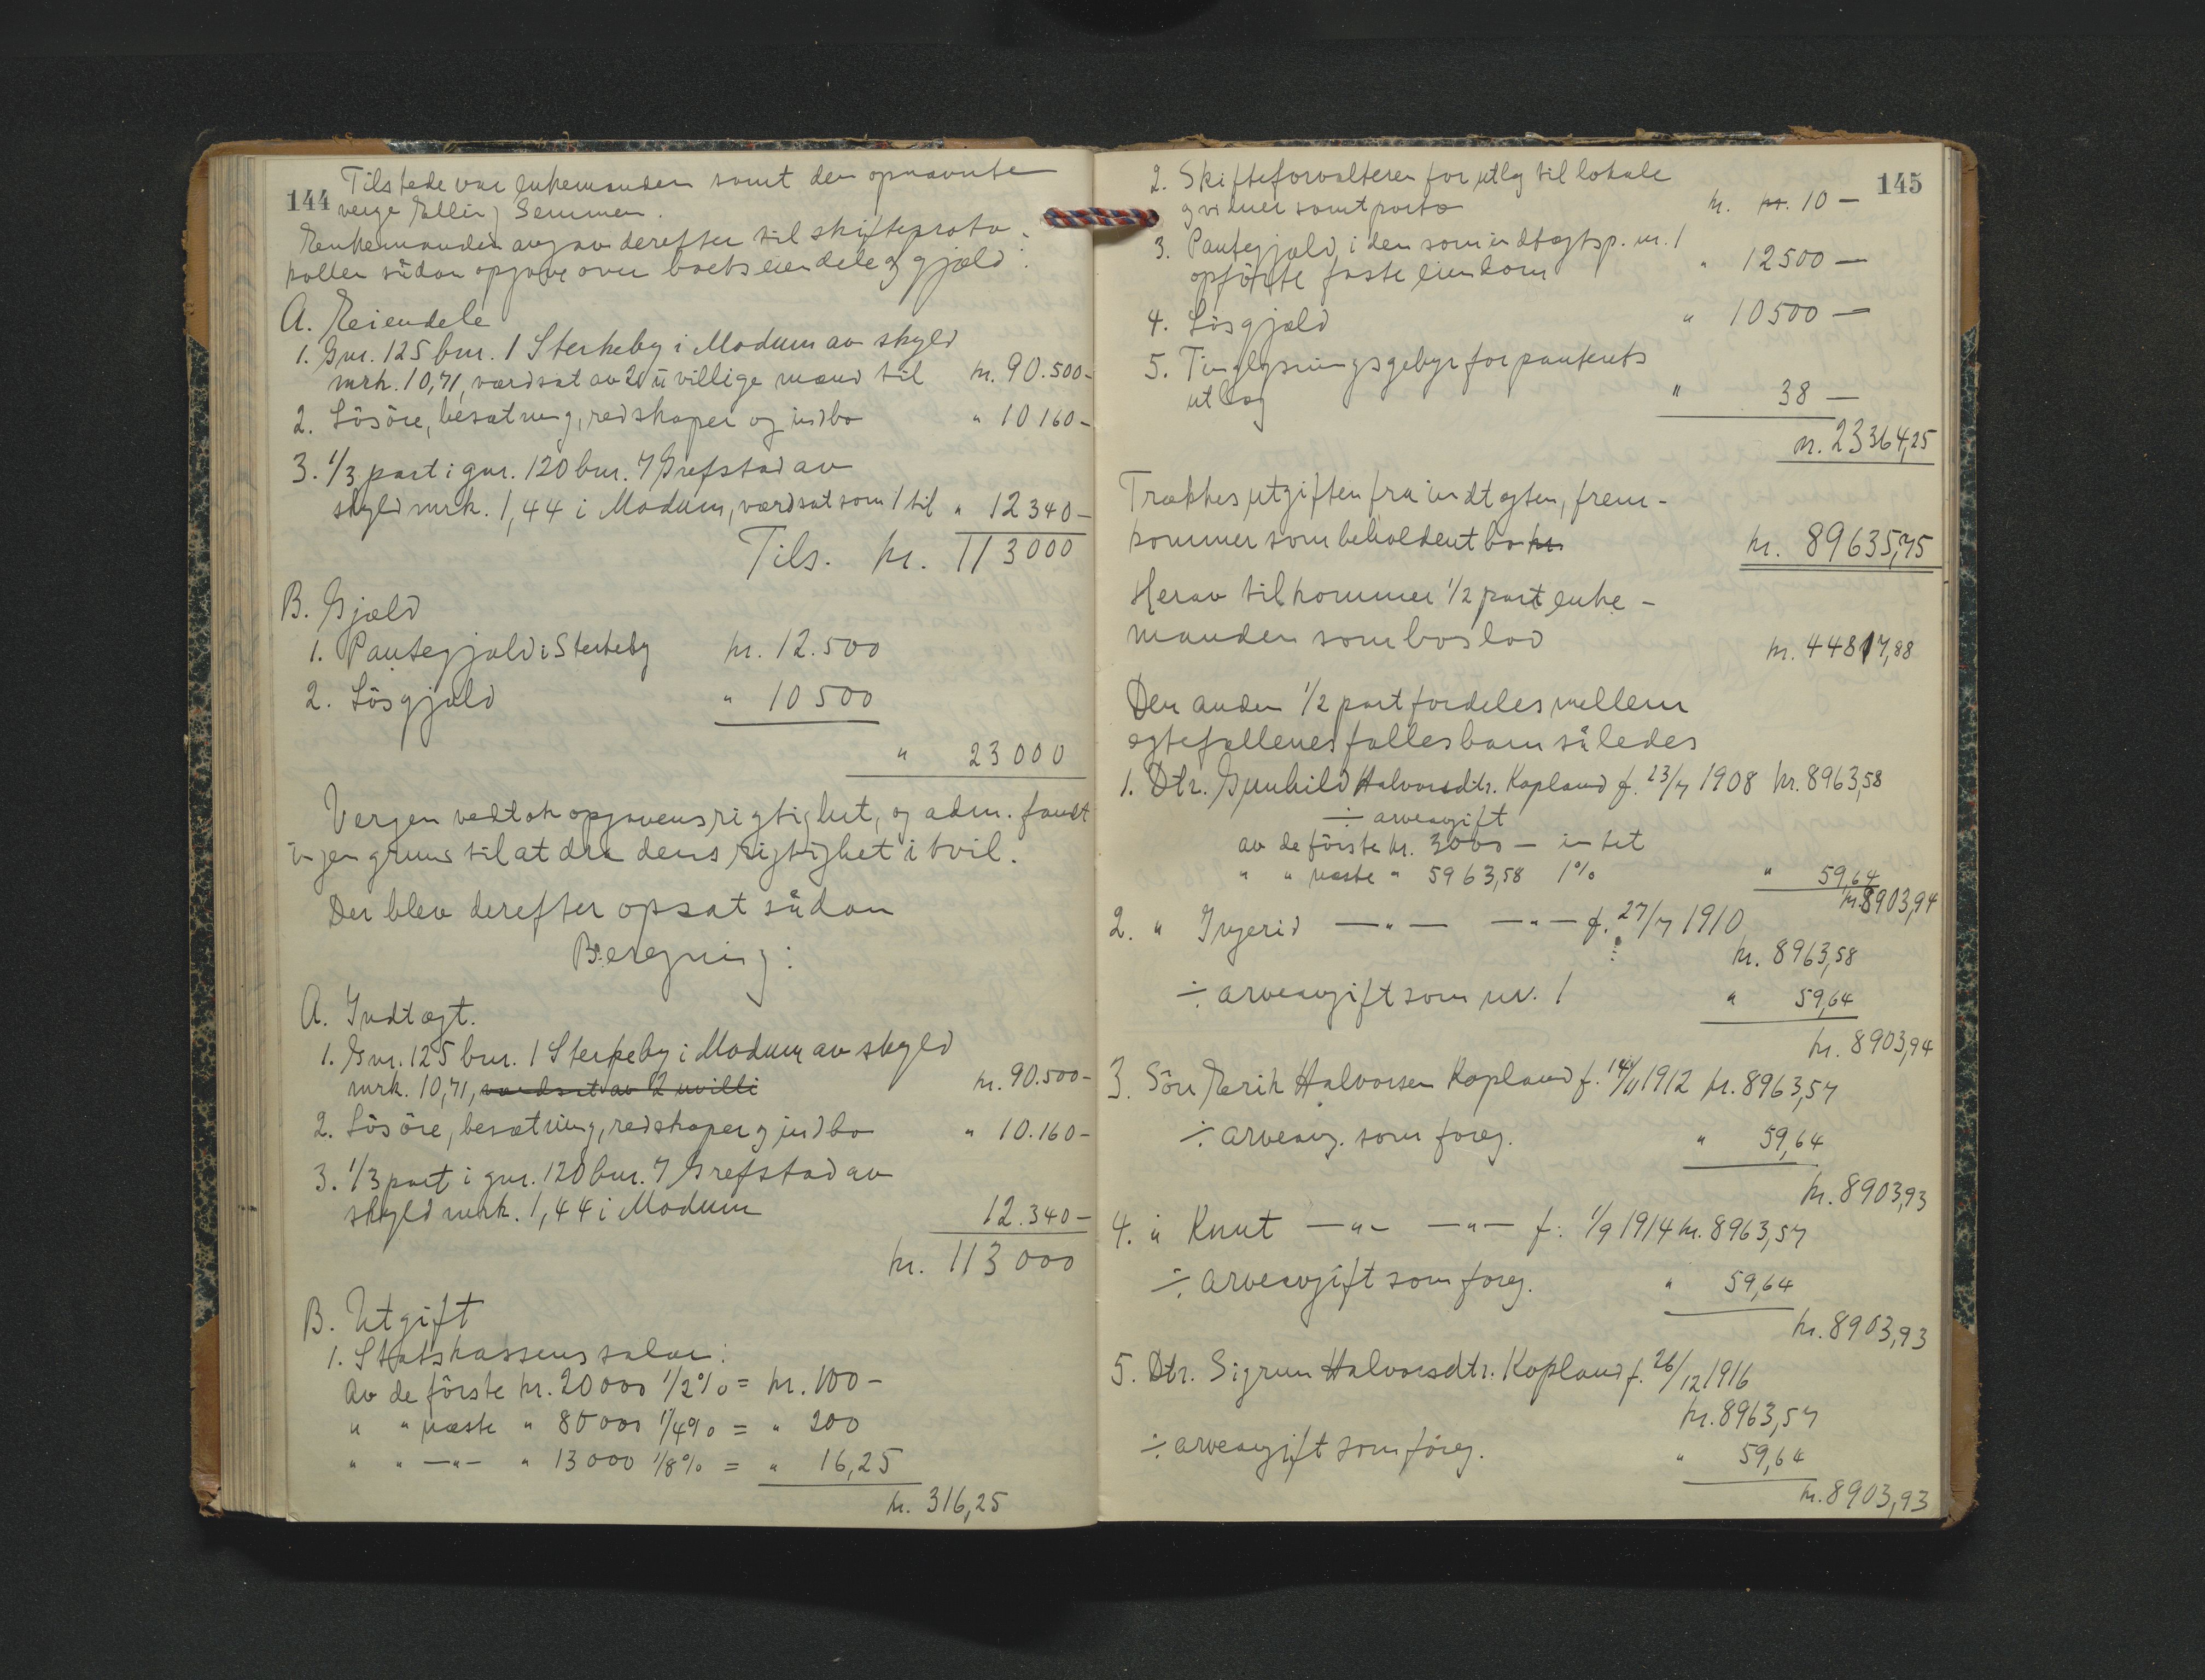 144
Tilstede var enkemanden samt den opnævnte
verge Elling Semmen.
Enkemanden angav derefter til skifteproto-
kollen sådan opgave over boets eiendele og gjæld:
A. Eiendele
1. Gnr. 125 bnr. 1 Sterkeby i Modum av skyld
mrk. 10,71, værdsat av 2 uvillige mænd til kr. 90.500-
2. Lösöre, besætning, redskaper og indbo " 10160-
3. 1/3 part i gnr. 120 bnr. 7 Grefstad av
skyld mrk. 1,44 i Modum, værdsat som 1 til " 12340-
Tils. kr. 113000
B. Gjæld
1. Pantegjæld i Sterkeby kr. 12.500
2. Lösgjæld " 10500
" 23000
Vergen vedtok opgavens rigtighet, og adm. fandt
ingen grund til at dra dens rigtighet i tvil.
Der blev derefter opsat sådan
Beregning:
A. Indtægt.
1. Gnr. 125 bnr. 1 Sterkeby i Modum av skyld
mrk. 10,71, værdsat av 2 uvilli kr. 90.500-
2. Lösöre, besætning, redskaper og indbo " 10.160-
3. 1/3 part i gnr. 120 bnr. 7 Grefstad av
skyld mrk. 1,44 i Modum 12.340-
kr. 113000
B. Utgift
1. Statskassens salær:
Av de förste kr. 20000 1/2% = kr. 100-
" " næste " 80000 1/4% = " 200
" " —"— " 13000 1/8% = " 16,25
kr. 316,25
145
2. Skifteforvalteren for utlæg til lokale
og vidner samt porto kr. kr. 10 —
3. Pantegjæld i den som indtægtsp. nr. 1
opförte faste eiendom " 12500 —
4. Lösgjæld " 10500 —
5. Tinglysningsgebyr for panterets
utlæg " 38 —
kr. 23364,25
Trækkes utgiften fra indtægten, frem-
kommer som beholdent bo kr. kr. 89635,75
Herav tilkommer 1/2 part enke-
manden som boslod kr. 44817,88
Den anden 1/2 part fordeles mellem
egtefællenes fælles barn således
1. Dtr. Gunhild Halvorsdtr. Kopland f. 23/7 1908 kr. 8963,58
÷ arveavgift
av de förste kr. 3000 — intet
" " næste " 5963,58 1% " 59,64
kr. 8903,94
2. " Ingerid —"— —"— f. 27/7 1910
kr. 8963,58
÷ arveavgift som nr. 1 " 59,64
kr. 8903,94
3. Sön Erik Halvorsen Kopland f. 14/11 1912 kr. 8963,57
÷ arveavg. som foreg. " 59,64
kr. 8903,93
4. " Knut —"— —"— f. 1/9 1914 kr. 8963,57
÷ arveavgift som foreg. " 59,64
kr. 8903,93
5. Dtr. Sigrun Halvorsdtr. Kopland f. 26/12 1916
kr. 8963,57
÷ arveavgift som foreg. " 59,64
kr. 8903,93